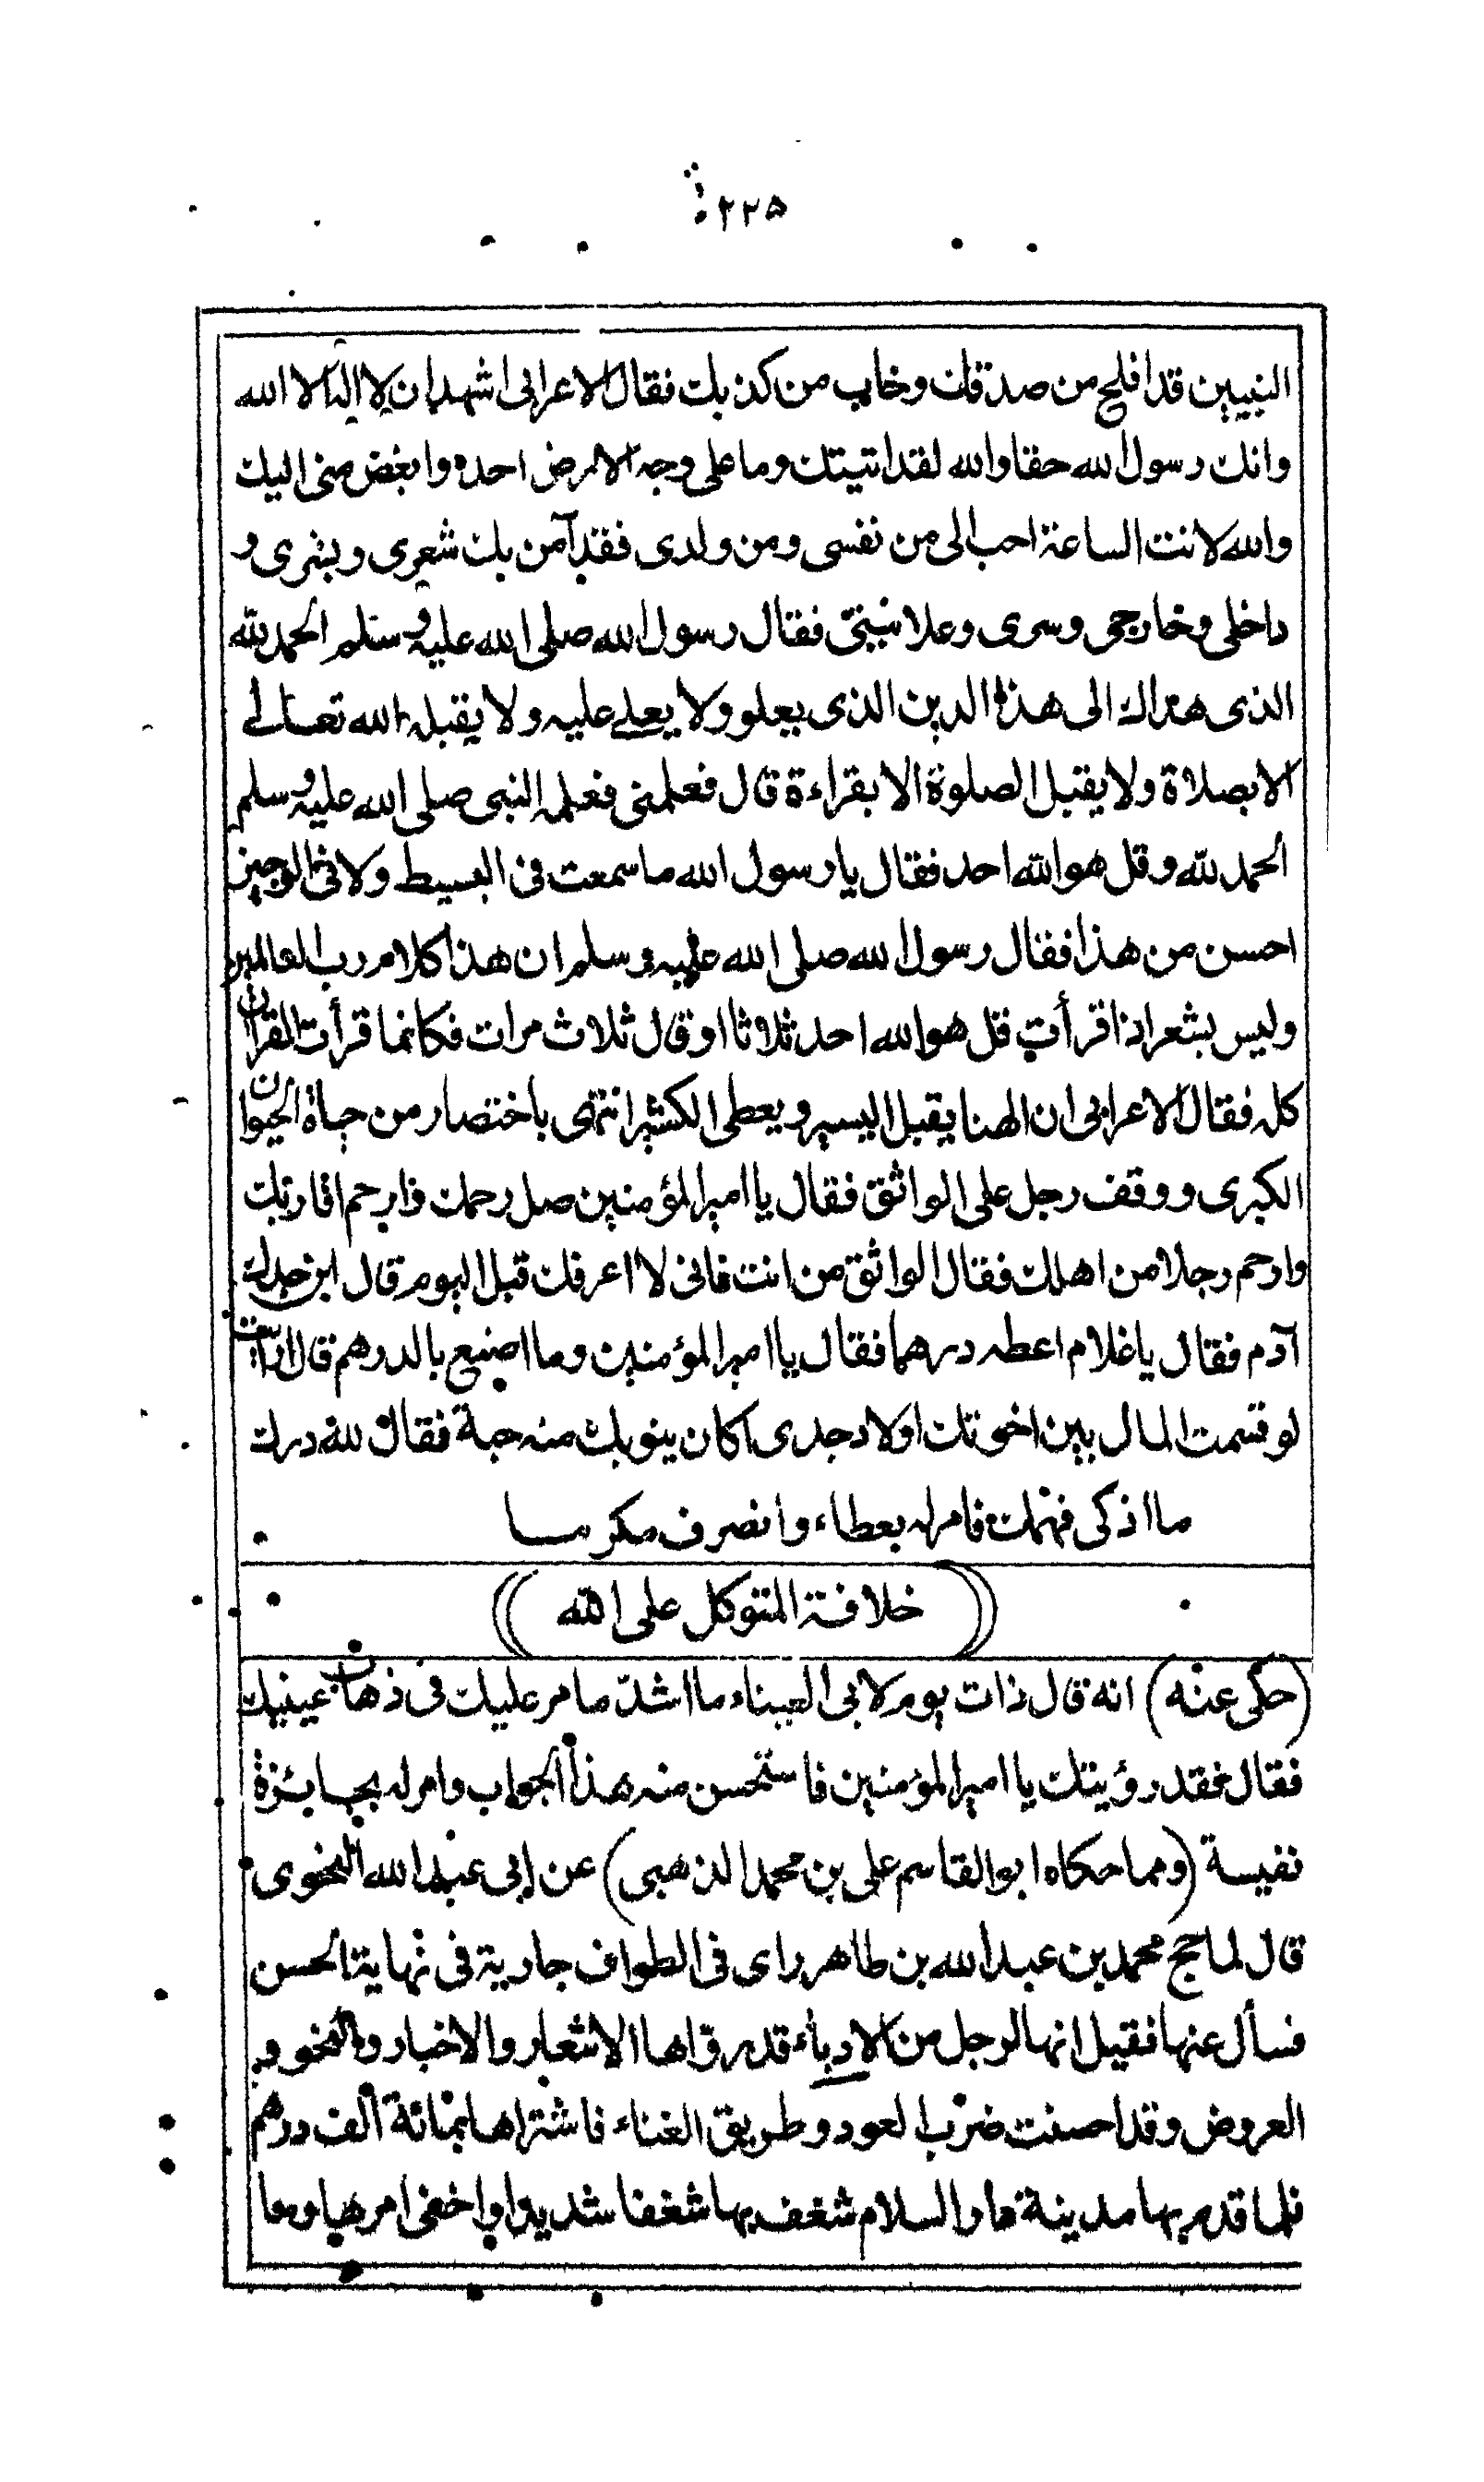 ٢٢٥
النبيين قد افلح من صدقك وخاب من كذبك فقال الاعرابى اشهد ان لا اله الا الله
وانك رسول الله حقا والله لقد اتيتك وما على وجه الارض احد وابغض منى اليك
والله لانت الساعة احب الى من نفسى ومن ولدى فقد آمن بك شعرى وبشرى و
داخلى وخارجى وسرى وعلانيتى فقال رسول الله صلى الله عليه وسلم الحمد لله
الذى هداك الى هذا الدين الذى يعلو ولا يعلے عليه ولا يقبله الله تعالے
الا بصلاة ولا يقبل الصلوة الا بقراءة قال فعلمنى فعلمه النبى صلى الله عليه وسلم
الحمد لله وقل هو الله احد فقال يا رسول الله ما سمعت فى البسيط ولا فى الوجيز
احسن من هذا فقال رسول الله صلى الله عليه وسلم ان هذا كلام رب العالمين
وليس بشعر اذا قرأت قل هو الله احد ثلاثا او قال ثلاث مرات فكانما قرأت القرآن
كله فقال الاعرابى ان الهنا يقبل اليسير ويعطى الكثير انتهى باختصار من حياة الحيوان
الكبرى ووقف رجل على الواثق فقال يا امير المؤمنين صل رحمك وارحم اقاربك
وارحم رجلا من اهلك فقال الواثق من انت فانى لا اعرفك قبل اليوم قال ابن جدك
آدم فقال يا غلام اعطه درهما فقال يا امير المؤمنين وما اصنع بالدرهم قال ارأيت
لو قسمت المال بين اخوتك اولاد جدى اكان ينوبك منه حبة فقال لله درك
ما اذكى فهمك فامر له بعطاء وانصرف مكرما
((خلافة المتوكل على الله))
(حكى عنه) انه قال ذات يوم لابى العيناء ما اشدّ ما مر عليك فى ذهاب عينيك
فقال فقد رؤيتك يا امير المؤمنين فاستحسن منه هذا الجواب وامر له بجايزة
نفيسة (ومما حكاه ابو القاسم على بن محمد الذهبى) عن ابى عبد الله النحوى
قال لما حج محمد بن عبد الله بن طاهر راى فى الطواف جارية فى نهاية الحسن
فسأل عنها فقيل انها لرجل من الادباء قد روّاها الاشعار والاخبار والنحو و
العروض وقد احسنت ضرب العود وطريق الغناء فاشتراها بمائة الف درهم
فلما قدم بها مدينة دار السلام شغف بها شغفا شديدا واخفى امرها وما